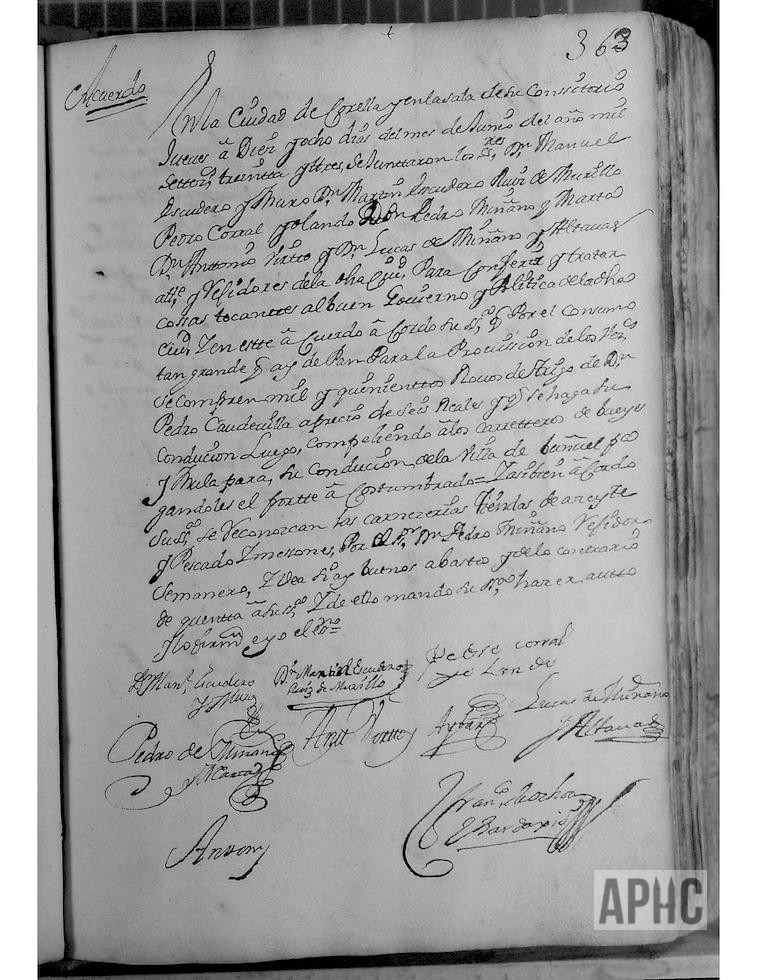 363
Acuerdo
En la Ciudad de Corella y en la sala de su Consistorio
Jueves â Diez y ocho dias del mes de Junio del año mil
Setteztos treintta y ttres, se Junctaron los ss.res Dn Manuel
Escudero y Muro Dn Martin Escudero Ruiz de Murillo
Pedro Corral y olando Dn Pedro Miñano y Marta
Dn Antonio Virtto y Dn Lucas de Miñano y Altavas
allde y Regidores de la dha Ciud Para Conferir y tratar
cossas tocanttes al buen Govierno y Política de la dha
Ciud. Y en estte â Cuerdo â Cordo su sª q Por el Consumo
tan grande q ay de Pan Para la Provission de los Vezos
se compren mil y quinienttos Rovos de trigo de Dn
Pedro Caudevilla a precio de seis Reales y q se haga su
Conducion Luego, Compeliendo âlos Carretteros de bueyes
y Mula para su Conducion, de la Villa de buñuel pa
gandoles el portte â Costumbrado = Tambien â Cordo
su sª se Reconozcan las carnizerias tiendas de aceyte
y Pescado y mesones, Por el sr Dn Pedro Miñano Regidor
Semanero, y Vea si ay buenos abastos y de lo contrario
de quentta â su sª Y de ello mando su sª hazer autto
y lo firmo e yo el esno
Dn Manl Escudero
y Muro
Dn Martin Escudero
Ruiz de Murillo
Pedro corral
y olando
Pedro de Miñano
y Marta
Antt Virtto y Aybar
Lucas de Miñano
y Altavas
Franco de ochoa
Y Bardaxi
Ante my
APHC